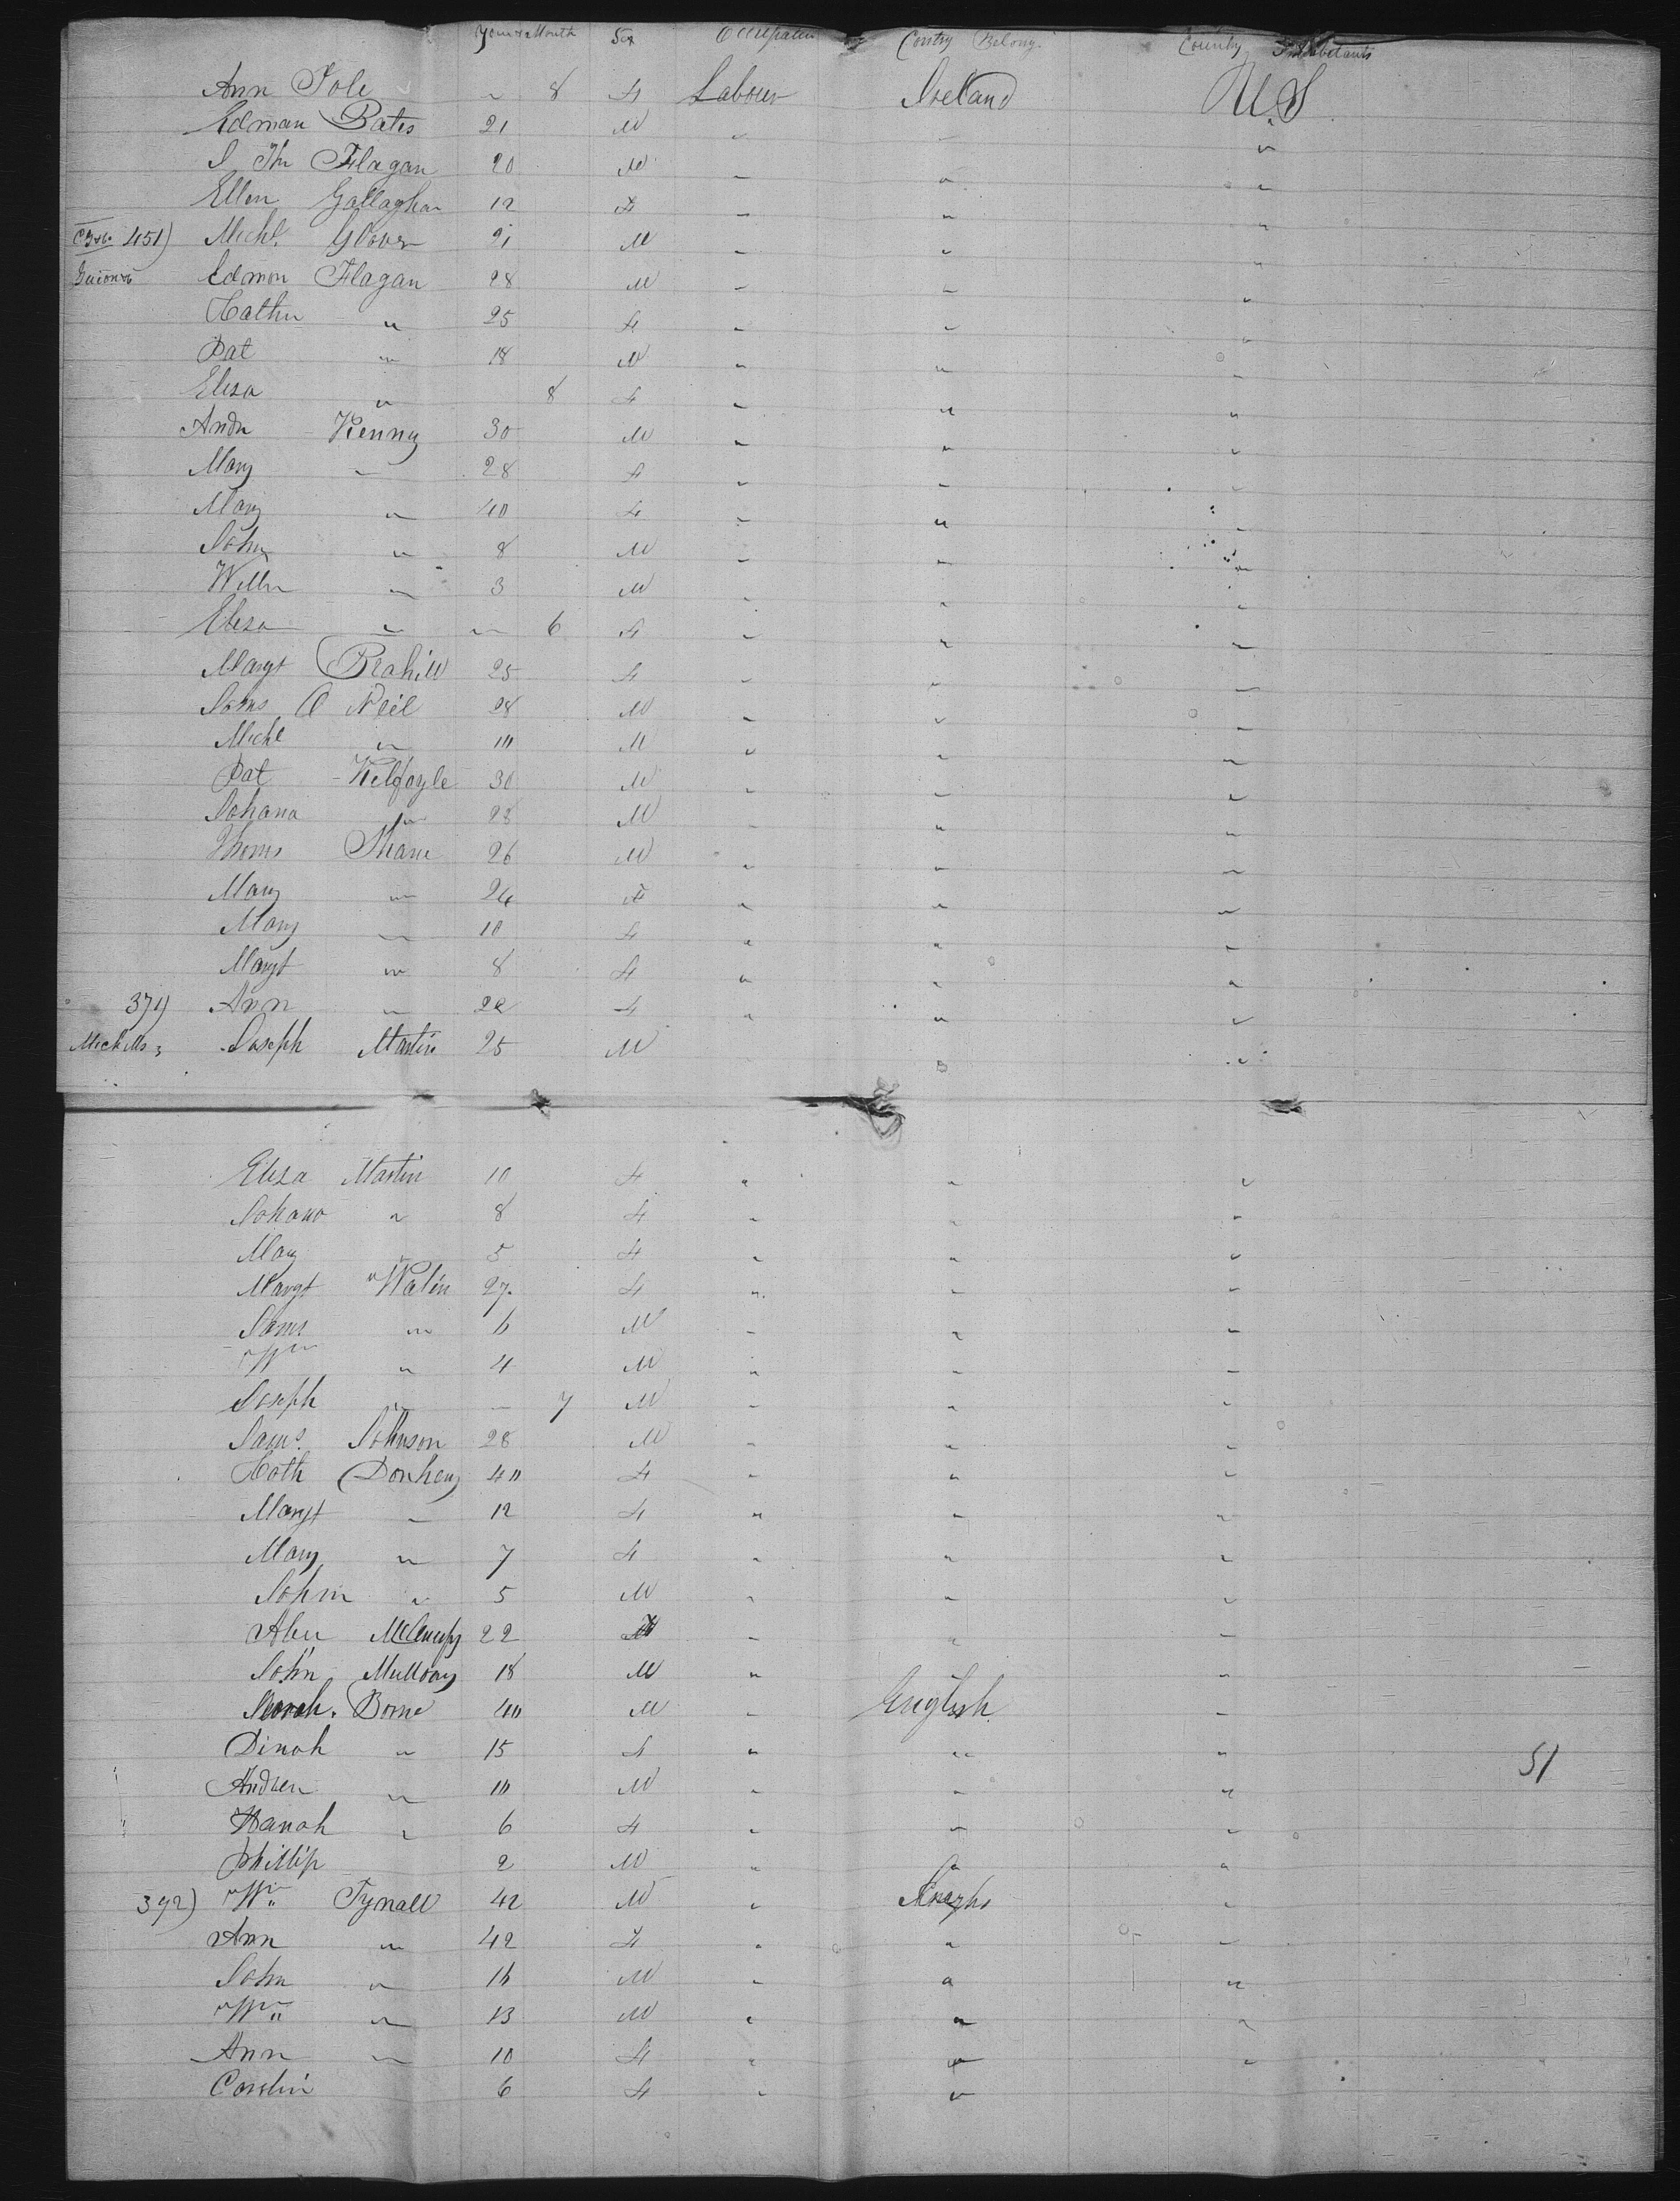 Year & Month Sex Occupation Contry Belong County Inhabitants
Ann 8 F Labour Ireland U.S
Edman Bates 21 M " " "
Flagan 20 M " " "
Ellen Gallaghar 12 F " " "
451) Michl. Glover 21 M " " "
Edmon Flagan 28 M " " "
Kathn " 25 F " " "
Pat " 18 M " " "
Elisa " 8 F " " "
Andw Kenny 30 M " " "
Mary " 28 F " " "
Mary " 40 F " " "
John " 8 M " " "
Willm " 3 M " " "
Elesa " " 6 F " " "
Margt Brahill 25 F " " "
James O Neil 28 M " " "
Michl " 10 M " " "
Pat Kelfoyle 30 M " " "
Johana " 28 M " " "
Thoms Shane 26 M " " "
Mary " 24 F " " "
Mary " 10 F " " "
Margt " 8 F " " "
371) Ann " 22 F " " "
Joseph Martin 25 M " "
Elesa Martin 10 F " " "
Johana " 8 F " " "
Mary " 5 F " " "
Margt Walin 27 F " " "
James " 6 M " " "
Wm " 4 M " " "
Joseph " " 7 M " " "
Jams. Johnson 28 M " " "
Kath Donheny 40 F " " "
Margt " 12 F " " "
Mary " 7 F " " "
John " 5 M " " "
22 M " " "
John Mullvany 18 M " " "
Sarah. Borne 40 M " English "
Dinah " 15 F " " "
51
Andrew " 10 M " " "
Hanah " 6 F " " "
Phillip 2 M " " "
392) Wm Tynall 42 M " "
Ann " 42 F " " "
John " 16 M " " "
Wm " 13 M " " "
Ann " 10 F " " "
Carolin 6 F " "